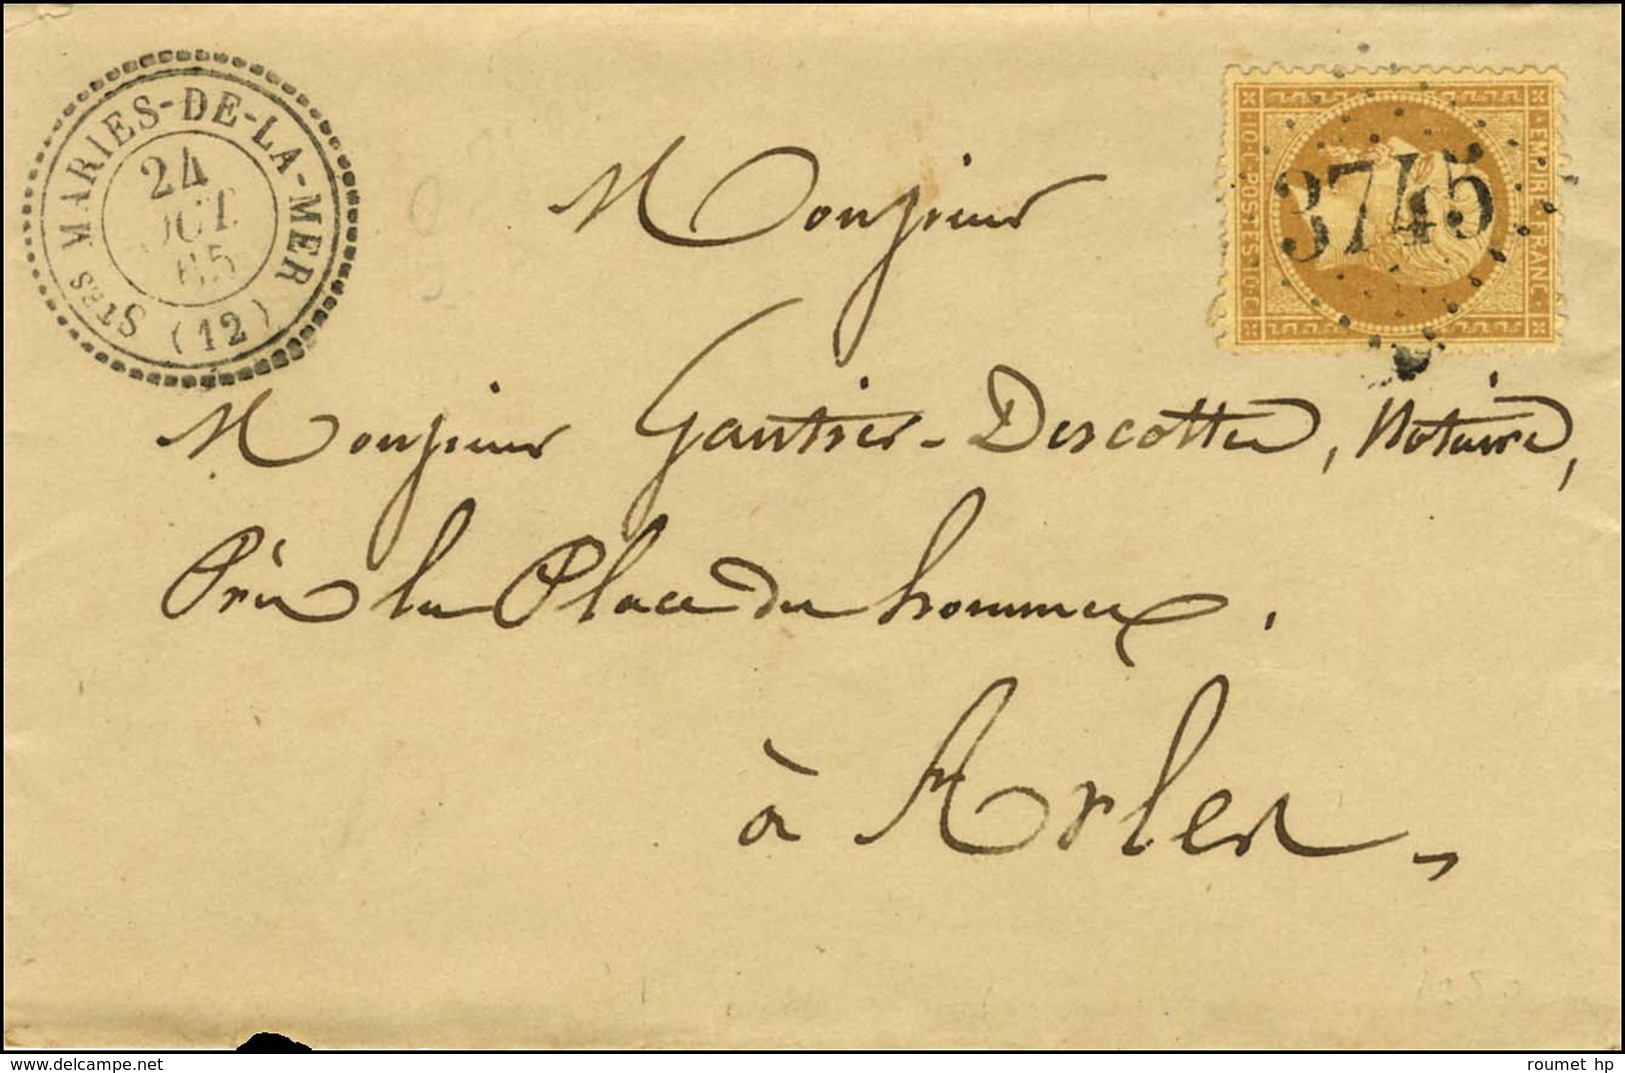 STES MARIES-DE-LA-MER
24
OCT.
65
(12)
EMPIRE FRANC
10.C POSTES 10.C
3745
Monsieur
Monsieur Gautier-Descottes, Notaire,
Près la Place des hommes.
à Arles,
delcampe.net
roumet hp